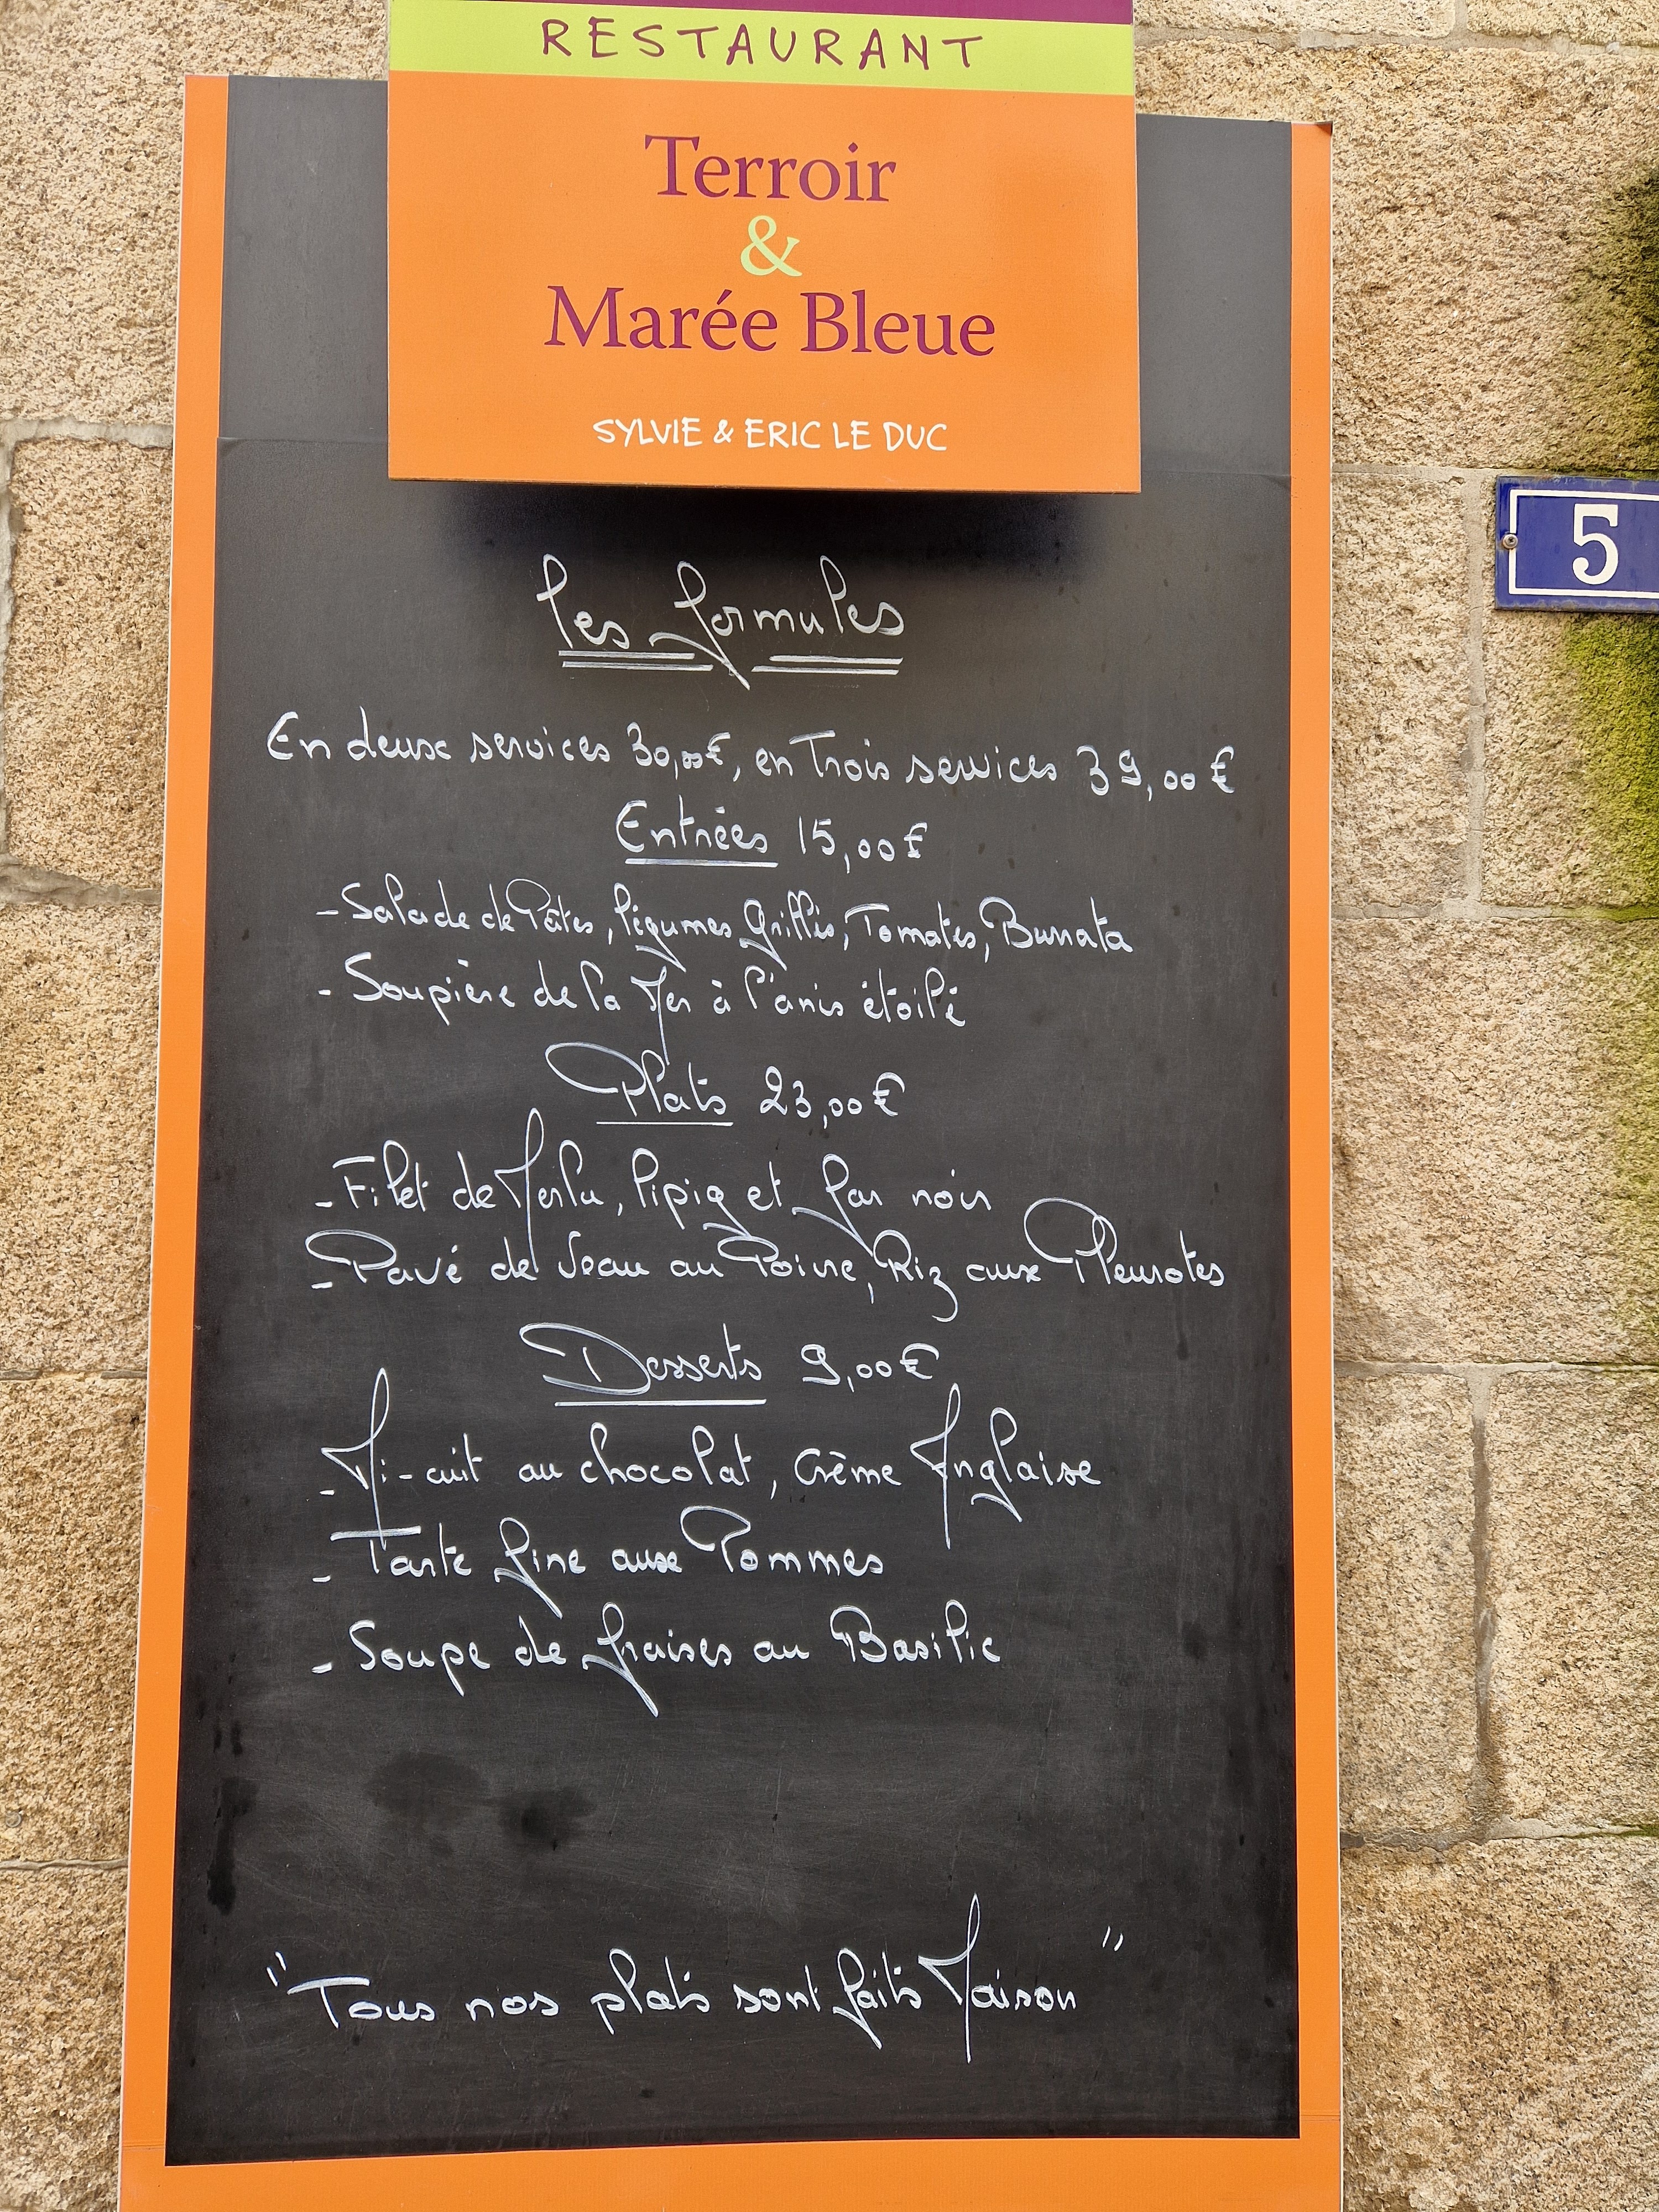 RESTAURANT
Terroir
&
Marée Bleue
SYLVIE & ERIC LE DUC
5
Les formules
En deux services 30,00€, en Trois services 39,00€
Entrées 15,00€
- Salade de Pâtes, légumes Grillés, Tomates, Burrata
- Soupière de la Mer à l'anis étoilé
Plats 23,00€
- Filet de Merlu, lipig et far noir
- Pavé de Veau au Poivre, Riz aux Pleurotes
Desserts 9,00€
- Mi-cuit au chocolat, crème Anglaise
- Tarte fine aux Pommes
- Soupe de fraises au Basilic
"Tous nos plats sont faits Maison"